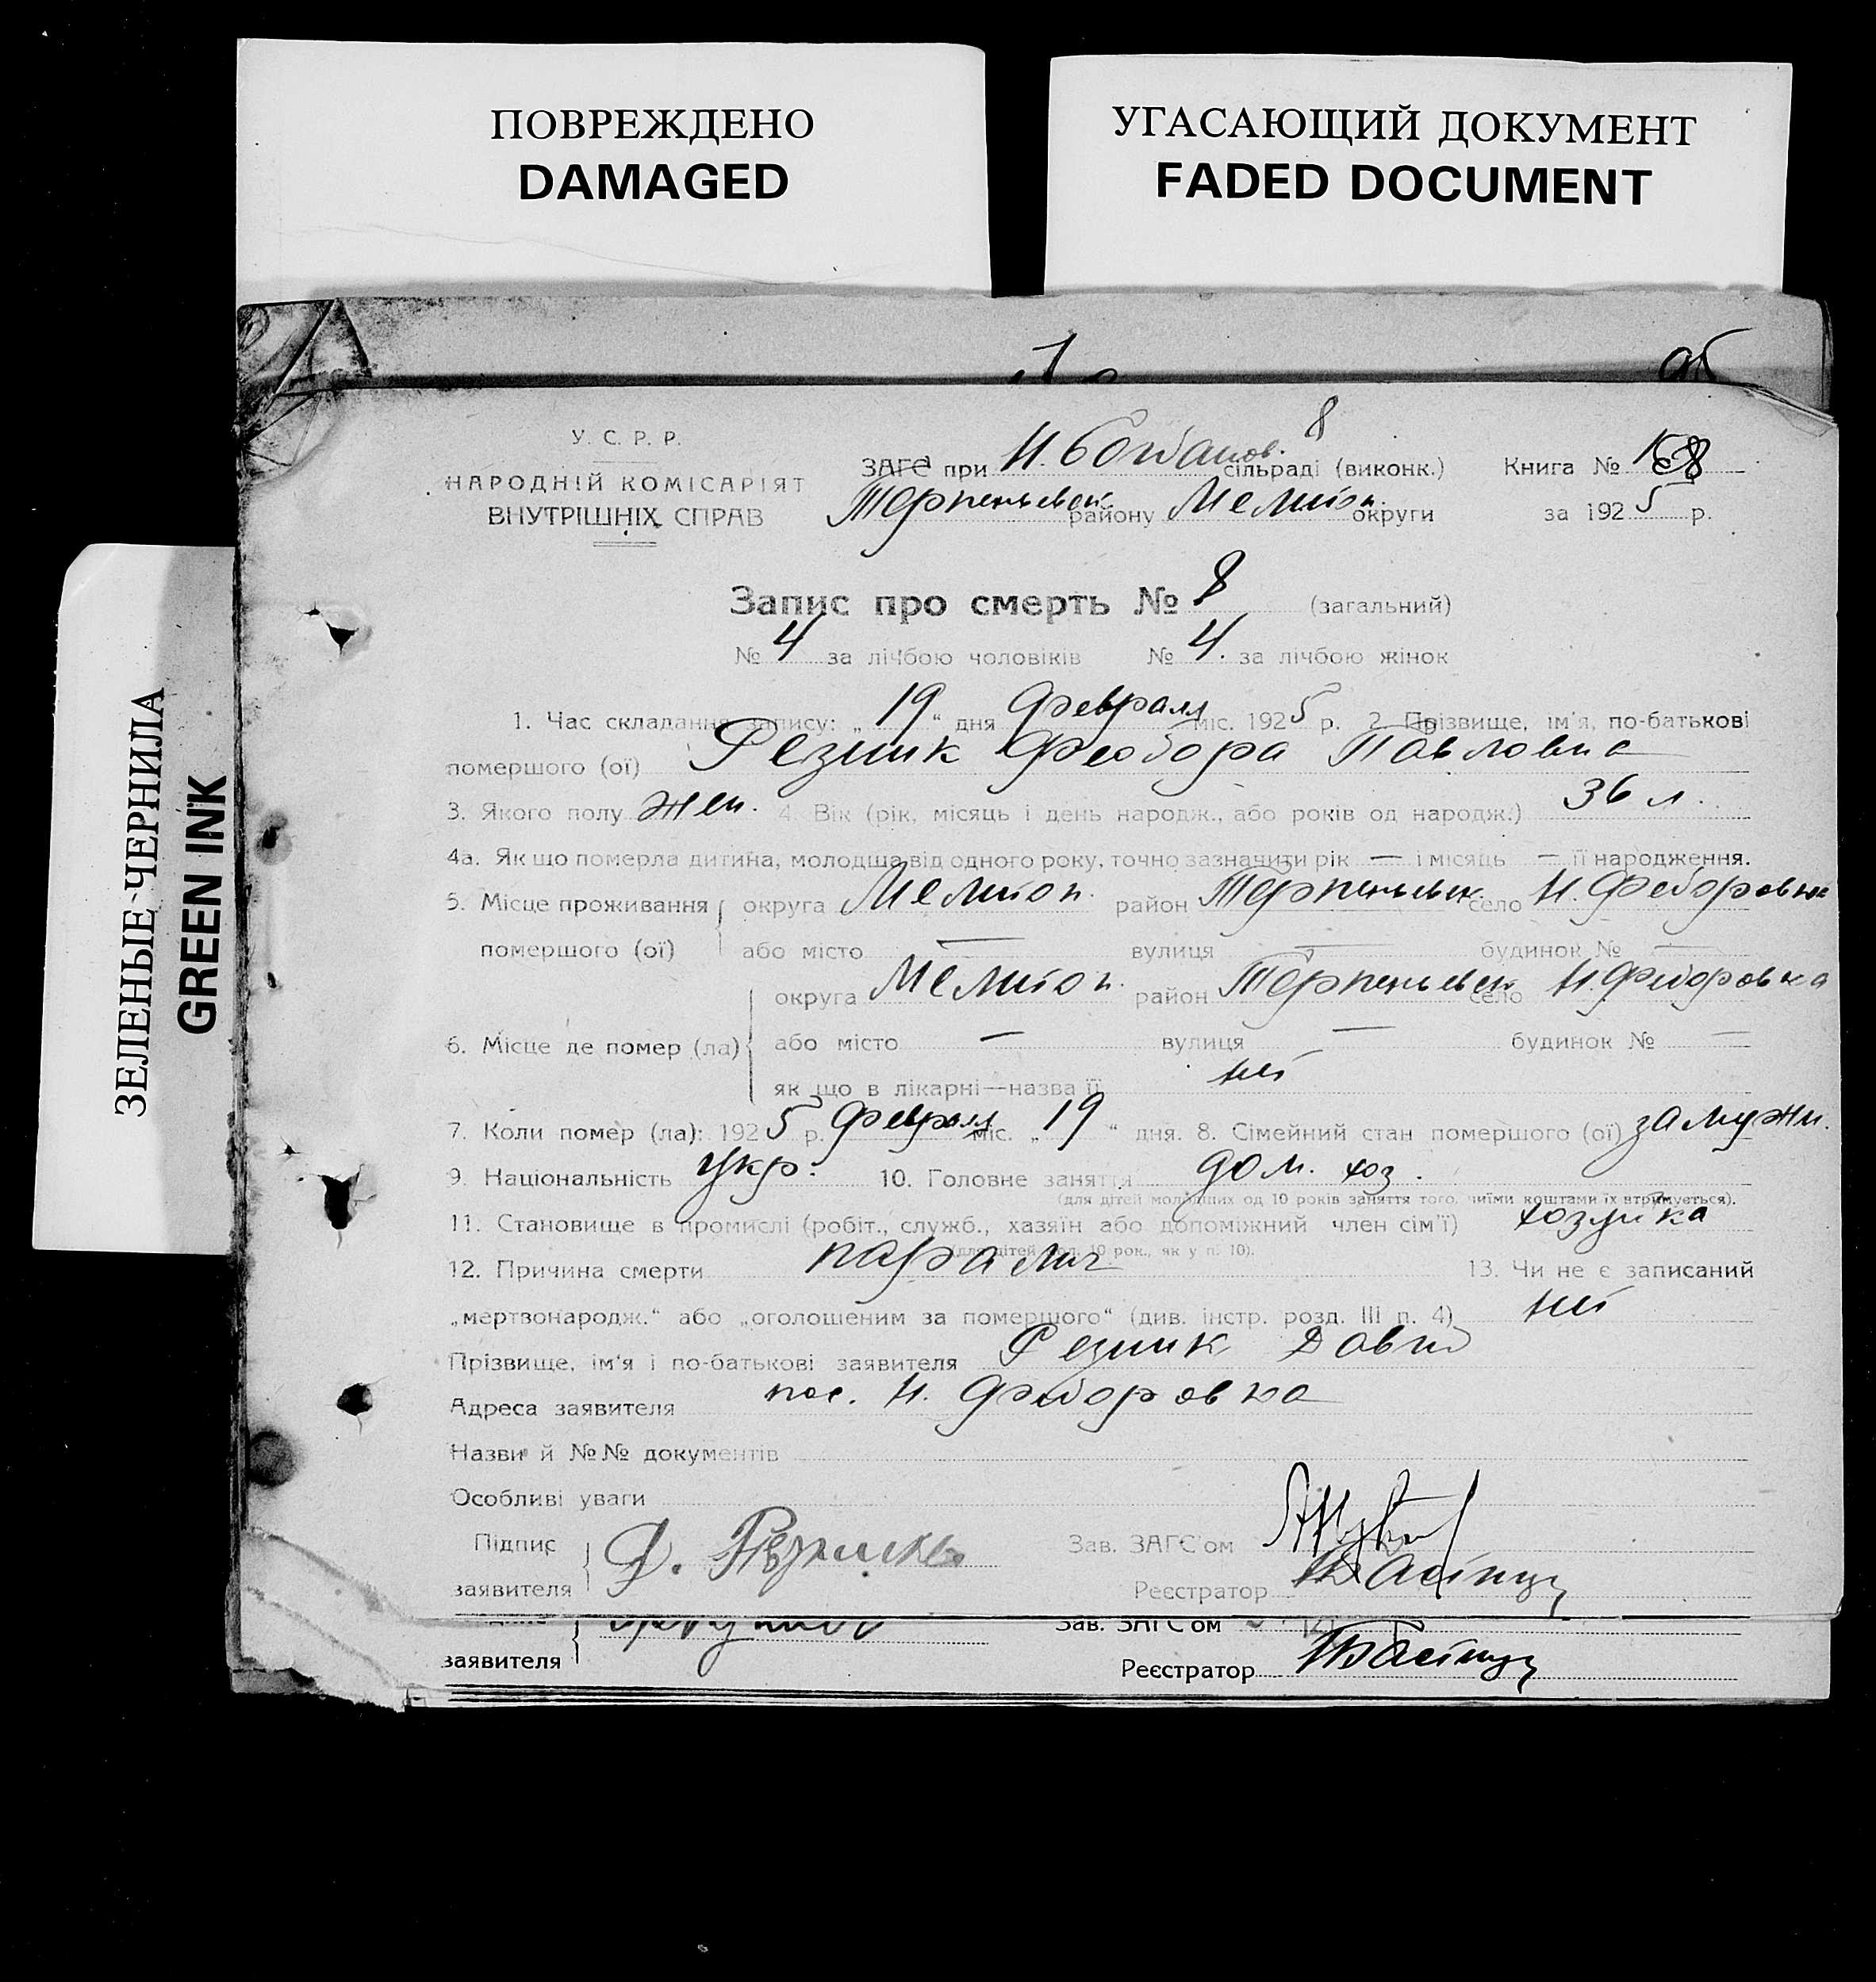 ПОВРЕЖДЕНО
DAMAGED
УГАСАЮЩИЙ ДОКУМЕНТ
FADED DOCUMENT
ЗЕЛЕНЫЕ ЧЕРНИЛА
GREEN INK
8
У. С. Р. Р.
НАРОДНІЙ КОМІСАРІЯТ
ВНУТРІШНІХ СПРАВ
ЗАГС при Н. Богданов. сільраді (виконк.) Книга №
Терпеньевск. району Мелитоп. округи за 1925 р.
Запис про смерть № 8 (загальний)
№ 4 за лічбою чоловіків № 4. за лічбою жінок
1. Час складання запису: „19“ дня февраля міс. 1925 р. 2. Прізвище, ім'я, по-батькові
помершого (ої) Резник Феодора Павловна
3. Якого полу жен. 4. Вік (рік, місяць і день народж., або років од народж.) 36 л.
4а. Якщо померла дитина, молодша від одного року, точно зазначити рік — і місяць — її народження.
5. Місце проживання округа Мелитоп. район Терпеньевск. село Н. Федоровка
помершого (ої) або місто — вулиця — будинок № —
округа Мелитоп. район Терпеньевск село Н. Федоровка
6. Місце де помер (ла) або місто — вулиця — будинок № —
як що в лікарні—назва її нет
7. Коли помер (ла): 1925 р. февраля міс. „19“ дня. 8. Сімейний стан помершого (ої) замужн.
9. Національність укр. 10. Головне заняття дом. хоз.
(для дітей молодших од 10 років заняття того, чиїми коштами їх втримується).
11. Становище в промислі (робіт., служб., хазяїн або допоміжний член сім'ї) хозяйка
(для дітей мол. 10 рок., як у п. 10).
12. Причина смерти паралич 13. Чи не є записаний
„мертвонародж.“ або „оголошеним за помершого“ (див. інстр. розд. III п. 4) нет
Прізвище, ім'я і по-батькові заявителя Резник Давид
Адреса заявителя пос. Н. Федоровка
Назви й №№ документів
Особливі уваги
Підпис Зав. ЗАГС'ом
заявителя Д. Резник Реєстратор
Зав. ЗАГС'ом
заявителя Реєстратор